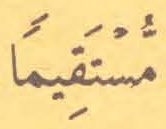 مُّسْتَقِيمًا